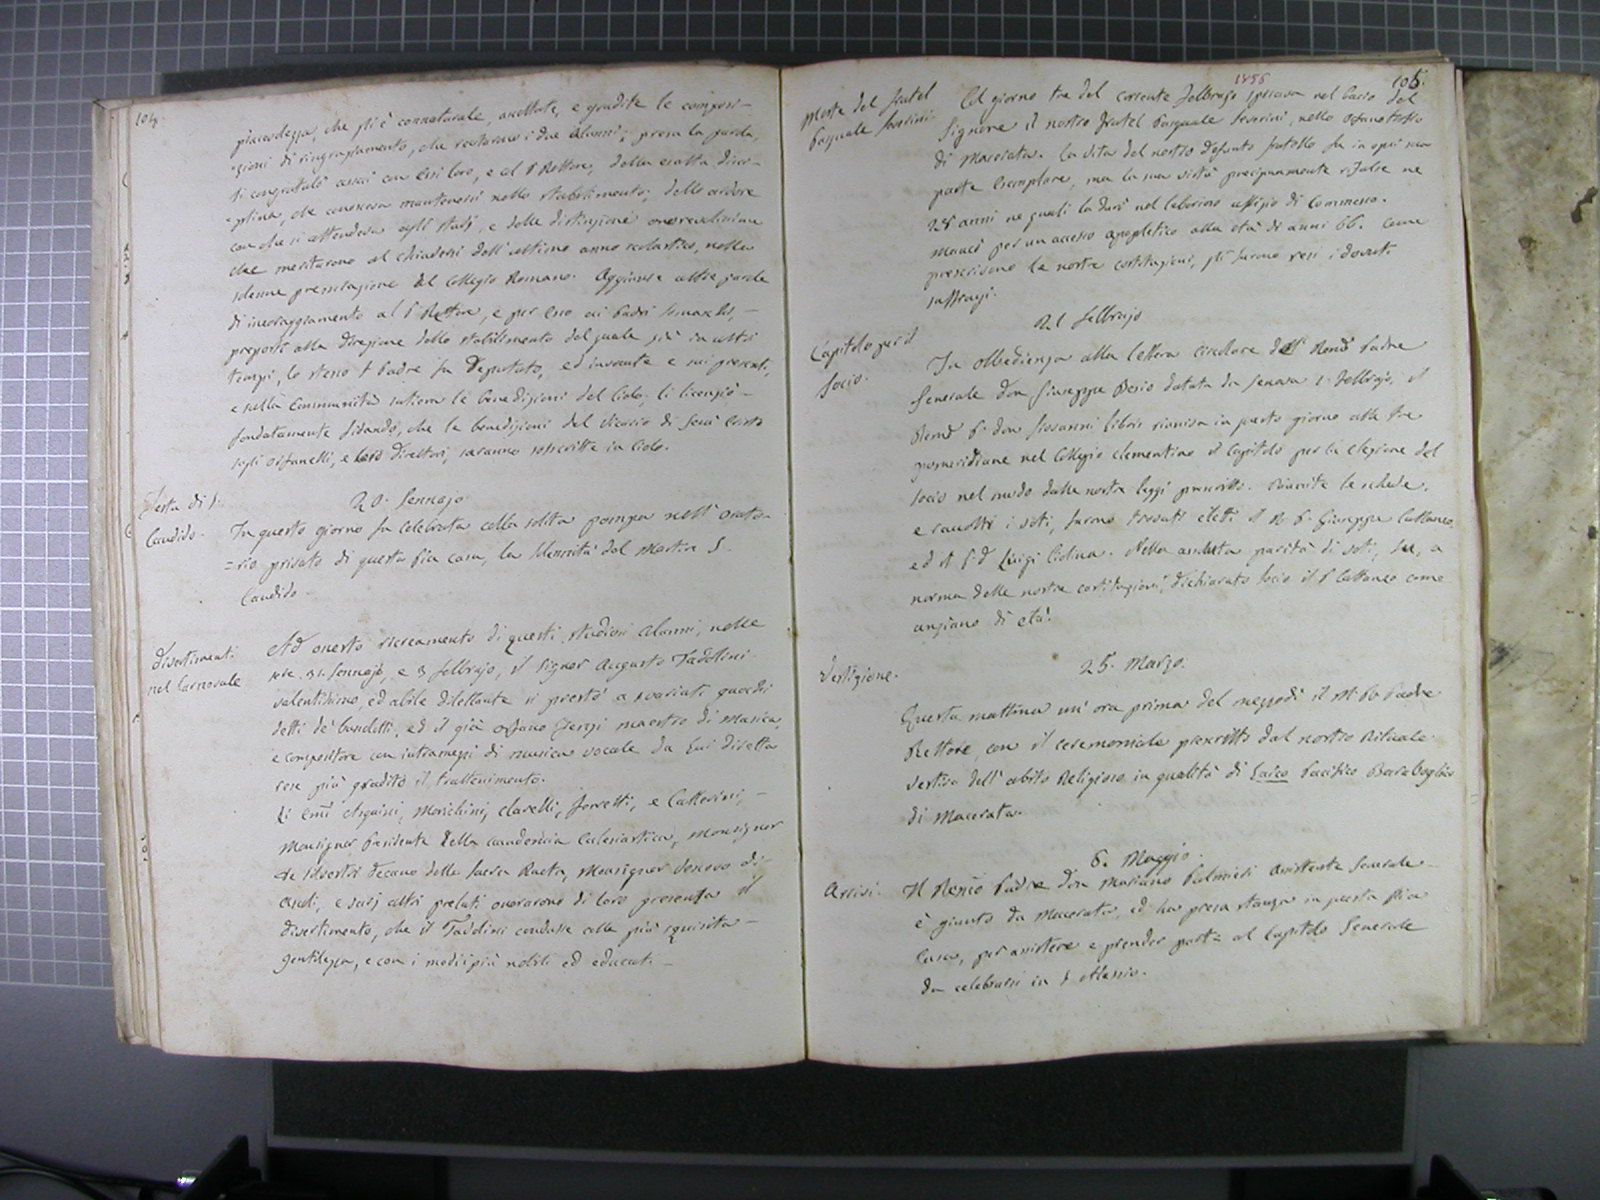 104.
piacevolezza, che gli è connaturale, ascoltate, e gradite le composi-
-zioni di ringraziamento, che recitarono i due alunni; presa la parola,
si congratulò assai con essi loro, e col P. Rettore, della esatta disci-
-plina, che conosceva mantenersi nello stabilimento; dello ardore
con che si attendeva agli studj, e delle distinzioni onorevolissime
che meritarono al chiudersi dell'ultimo anno scolastico, nella
solenne premiazione del Collegio Romano. Aggiunse altre parole
di incoraggiamento al P. Rettore, e per esso ai Padri Somaschi, -
preposti alla direzione dello stabilimento del quale già in altri
tempi, lo stesso S. Padre fu Deputato, ed invocate e sui presenti,
e sulla Communità intiera le benedizioni del Cielo, li licenziò -
fondatamente fidando, che le benedizioni del Vicario di Gesù Cristo
sugli orfanelli, e loro Direttori, saranno sottoscritte in Cielo.
Festa di S.
Candido.
20. Gennajo
In questo giorno fu celebrata colla solita pompa nell' Orato-
=rio privato di questa Pia Casa, la solennità del Martire S.
Candido.
Divertimenti
nel Carnovale
Ad onesto ricreamento di questi studiosi alunni, nelle
sere 31. Gennajo, e 3 febbrajo, il Signor Augusto Tadolini
valentissimo, ed abile dilettante si prestò a svariati quadri
detti de' banditti, ed il già orfano Terzi maestro di Musica,
e compositore con intramezzi di musica vocale da lui diretta
rese più gradito il trattenimento.
Li Emi Asquini, Marchini, Clarelli, Ferretti, e Catterini, -
Monsignor Presidente della Accademia Ecclesiastica, Monsignor
de Silvestri Decano della Sacra Ruota, Monsignor Vescovo di
e varj altri prelati onorarono di loro presenza il
divertimento, che il Tadolini condusse colla più squisita -
gentilezza, e con i modi più nobili ed educati. -
1856
105.
Morte del fratel
Pasquale Severini.
Col giorno tre del corrente febbrajo spirava nel bacio del
Signore il nostro fratel Pasquale Severini, nello Orfanotrofio
di Macerata. La vita del nostro defunto fratello fu in ogni sua
parte esemplare, ma la sua virtù precipuamente rifulse ne
28 anni ne quali la durò nel laborioso uffizio di Commesso.
Mancò per un accesso apopletico alla età di anni 66. Come
prescrivono le nostre costituzioni, gli furono resi i dovuti
suffragj.
Capitolo per il
Socio.
21 febbrajo
In obbedienza alla lettera circolare dell Revmo Padre
Generale Don Giuseppe Besio datata da Genova 1. febbrajo, il
Revmo P. don Giovanni Libois riuniva in questo giorno alle tre
pomeridiane nel Collegio Clementino il Capitolo per la elezione del
Socio nel modo dalle nostre leggi prescritto. Riunite le schede,
e raccolti i voti, furono trovati eletti il R. P. Giuseppe Cattaneo
ed il P. D. Luigi Nella parità di voti, fu, a
norma delle nostre costituzioni, dichiarato Socio il P. Cattaneo come
anziano di età.
Vestizione.
25. Marzo.
Questa mattina un' ora prima del mezzodì il M. Rdo Padre
Rettore con il ceremoniale prescritto dal nostro Rituale
vestiva dell' abito Religioso in qualità di Laico Pacifico
di Macerata.
Arrivi.
6. Maggio.
Il Revmo Padre Don Mariano Palmieri Assistente Generale -
è giunto da Macerata, ed ha presa stanza in questa Pia
Casa, per assistere e prender parte al Capitolo Generale
da celebrarsi in S. Alessio.